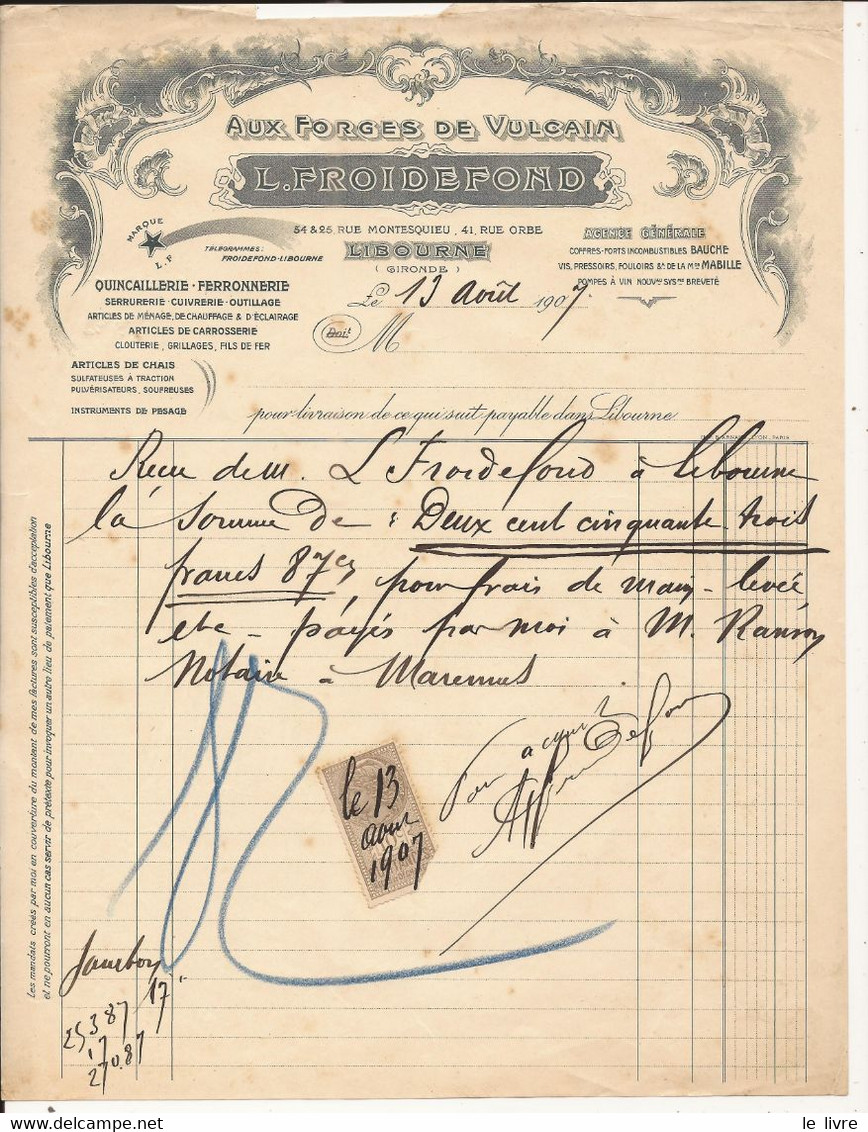 AUX FORGES DE VULCAIN
L. FROIDEFOND
54 & 25, RUE MONTESQUIEU, 41, RUE ORBE
LIBOURNE
(GIRONDE)
MARQUE
L.F
TÉLÉGRAMMES:
FROIDEFOND-LIBOURNE
QUINCAILLERIE - FERRONNERIE
SERRURERIE - CUIVRERIE - OUTILLAGE
ARTICLES DE MÉNAGE, DE CHAUFFAGE & D'ÉCLAIRAGE
ARTICLES DE CARROSSERIE
CLOUTERIE, GRILLAGES, FILS DE FER
ARTICLES DE CHAIS
SULFATEUSES À TRACTION
PULVÉRISATEURS, SOUFREUSES
INSTRUMENTS DE PESAGE
AGENCE GÉNÉRALE
COFFRES-FORTS INCOMBUSTIBLES BAUCHE
VIS, PRESSOIRS, FOULOIRS &A DE LA MON MABILLE
POMPES À VIN NOUVAU SYSME BREVETÉ
Le 13 Août 1907
Doit M
pour livraison de ce qui suit payable dans Libourne
Recu de M. L Froidefond à Libourne
la somme de : Deux cent cinquante trois
francs 87 ces, pour frais de main-levée
etc - payés par moi à M.
Notaire à Marennes
Pour acquit
le 13
aout
1907
17
253.87
17
270.87
Les mandats créés par moi en couverture du montant de mes factures sont susceptibles d'acceptation
et ne pourront en aucun cas servir de prétexte pour invoquer un autre lieu de paiement que Libourne
le livre